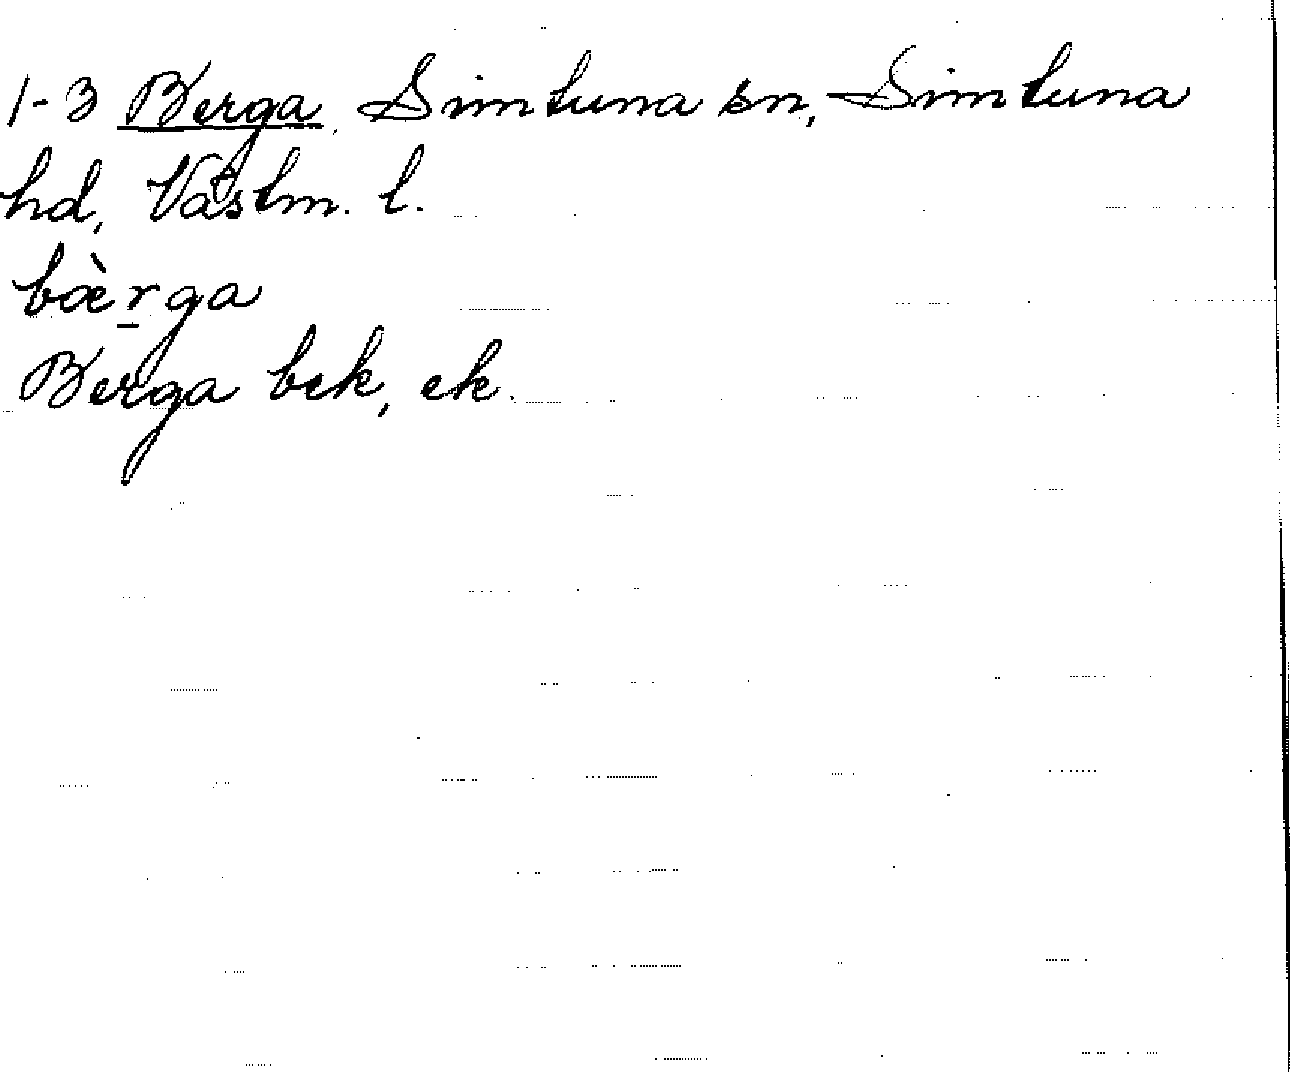 1-3 Berga, Simtuna sn, Simtuna
hd, Västm. l.
bæ̀r̠ga
Berga bek, ek.